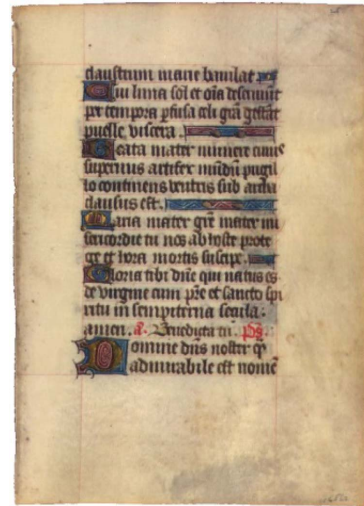 claustrum marie baiulat
Cui luna sol et oīa deseruiūt
per tempora pfusa celi grā gestāt
puelle viscera.
Beata mater munere cuius
supernus artifex mūdū pugil
lo continens ventris sub archa
clausus est.
Maria mater grē mater mi
sericordie tu nos ab hoste prote
ge et hora mortis suscipe.
Gloria tibi dnē qui natus es
de virgine cum pr̄e et sancto spi
ritu in sempiterna secula.
amen. a. Benedicta tu. Ps.
Domine dn̄s noster q̄
admirabile est nomē